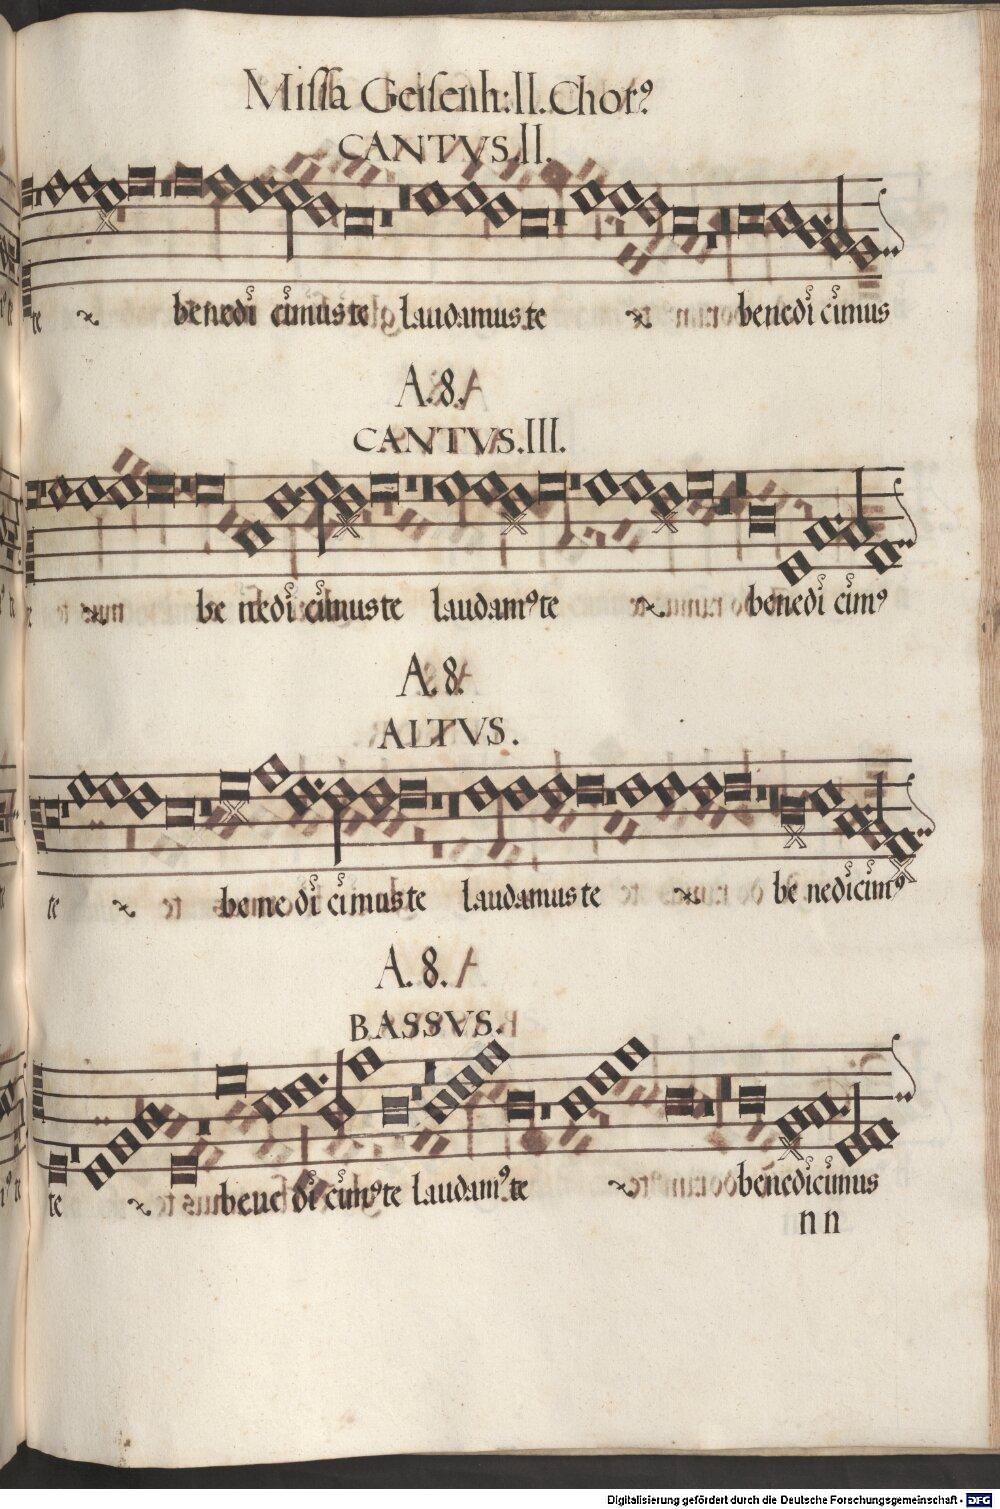 Missa Geisenh: II. Chorꝰ
CANTVS. II.
te benedicimus te laudamus te benedicimus
A. 8.
CANTVS. III.
be nedi cimus te laudamꝰ te benedi cimꝰ
A. 8.
ALTVS.
te bene di cimus te laudamus te be nedicimꝰ
A. 8.
BASSVS.
te bene di cimꝰ te laudamꝰ te benedicimus
n n
Digitalisierung gefördert durch die Deutsche Forschungsgemeinschaft - DFG